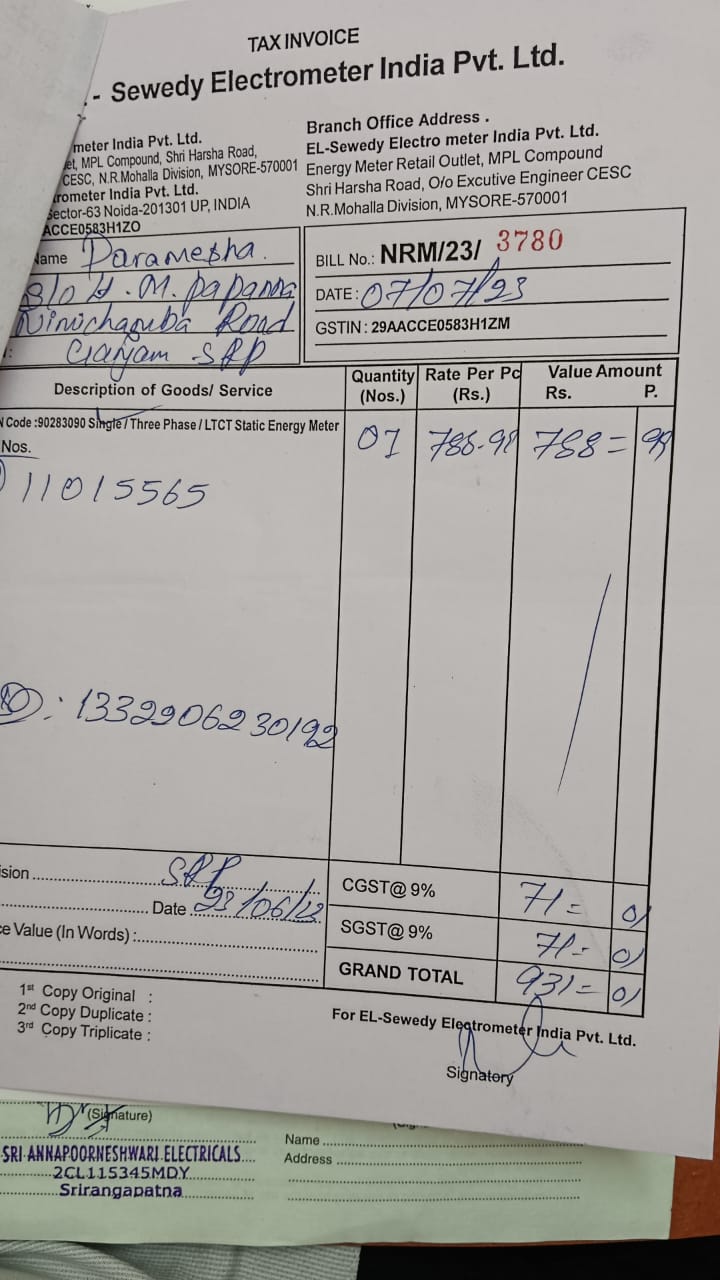 TAX INVOICE
- Sewedy Electrometer India Pvt. Ltd.
meter India Pvt. Ltd.
et, MPL Compound, Shri Harsha Road,
CESC, N.R.Mohalla Division, MYSORE-570001
rometer India Pvt. Ltd.
Sector-63 Noida-201301 UP, INDIA
ACCE0583H1ZO
Branch Office Address .
EL-Sewedy Electro meter India Pvt. Ltd.
Energy Meter Retail Outlet, MPL Compound
Shri Harsha Road, O/o Excutive Engineer CESC
N.R.Mohalla Division, MYSORE-570001
Name Paramesha
S/o H.M. papanna
Road
Ganjam SRP
BILL No.: NRM/23/ 3780
DATE: 07/07/23
GSTIN : 29AACCE0583H1ZM
Description of Goods/ Service
Quantity (Nos.)
Rate Per Pc (Rs.)
Value Amount
Rs. P.
N Code :90283090 Single / Three Phase / LTCT Static Energy Meter
Nos.
01 788=99
11015565
: 1332906230192
ision SRP
Date 23/06/23
ce Value (In Words) :
CGST@ 9% 71= 01
SGST@ 9% 71= 01
GRAND TOTAL 931= 01
1st Copy Original :
2nd Copy Duplicate :
3rd Copy Triplicate :
For EL-Sewedy Electrometer India Pvt. Ltd.
Signatory
(Signature)
SRI ANNAPOORNESHWARI ELECTRICALS
2CL115345MDY
Srirangapatna
Name
Address